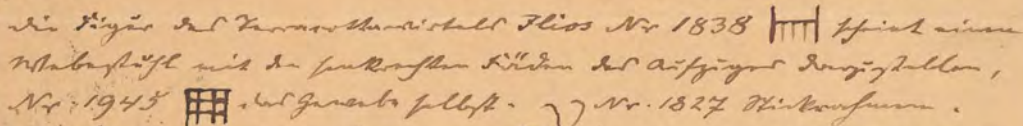 Die Figur des Terracottawirtels Ilios Nr 1838 scheint einen
Webestuhl mit den senkrechten Fäden des Aufzuges darzustellen,
Nr. 1945 das Gewebe selbst. Nr. 1827 Stickrahmen.